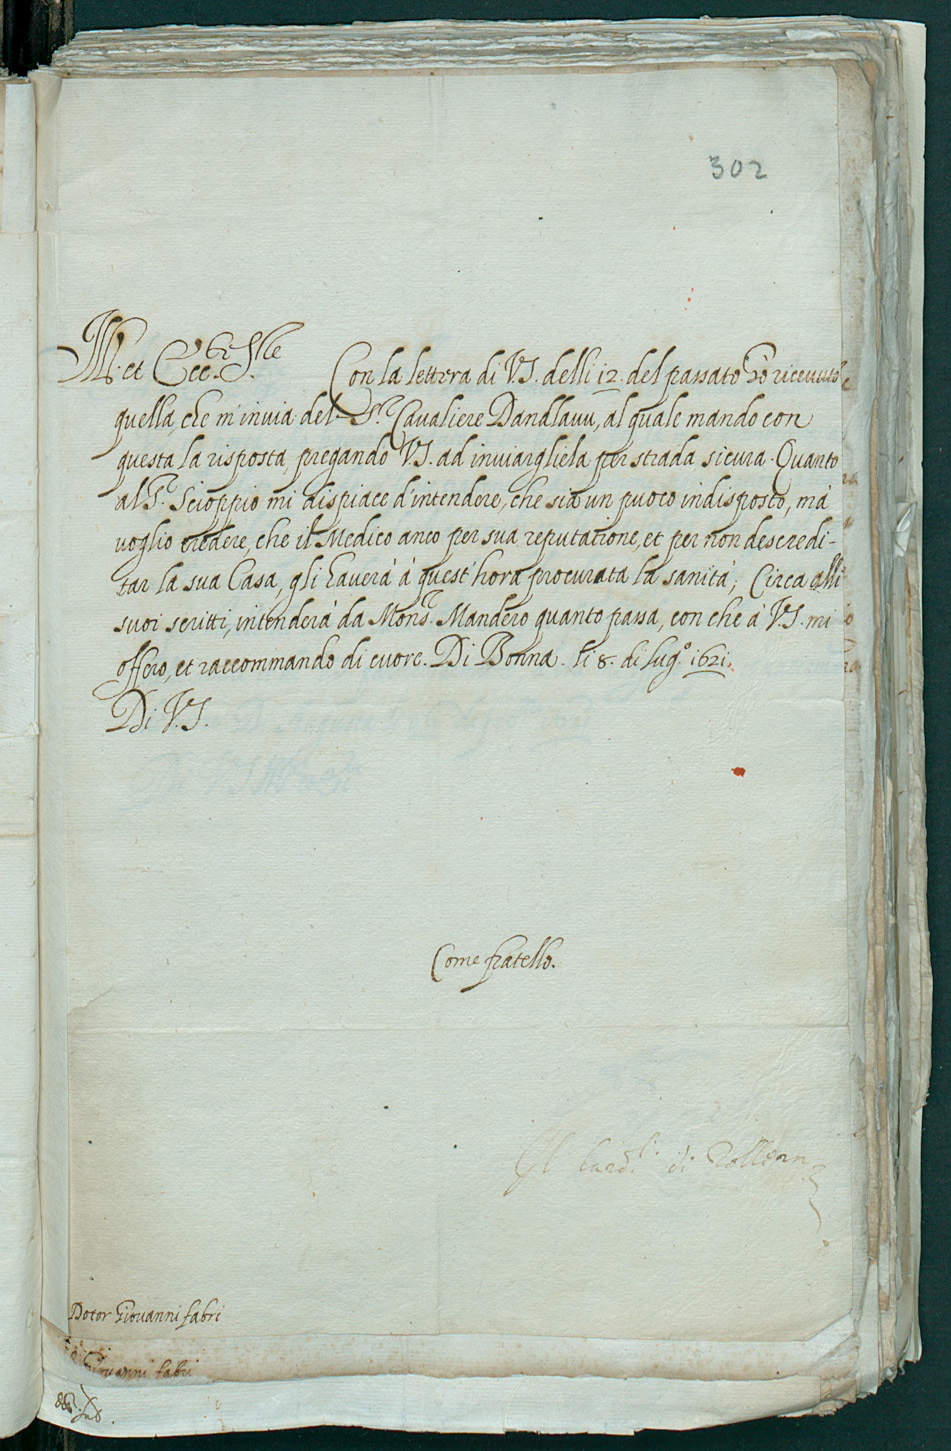 302
Ill. et Ecc. Sre
Con la lettera di V.S. delli 12. del passato hò ricevuto
quella, che m'invia del Sr. Cavaliere Dandlauu, al quale mando con
questa la risposta, pregando V.S. ad inviargliela per strada sicura. Quanto
al Sr. Scioppio mi dispiace d'intendere, che sia un puoco indisposto, mà
voglio credere, che il Medico anco per sua reputatione, et per non descredi-
tar la sua Casa, gli haverà à quest'hora procurata la sanità; Circa alli
suoi scritti, intenderà da Monsr. Mandero quanto passa, con che à V.S. mi
offero, et raccommando di cuore. Di Bonna. li 8. di Lugo. 1621.
Di V.S.
Come fratello.
Il Card.l di Zollern
Dotor Giovanni fabri
Giovanni fabri